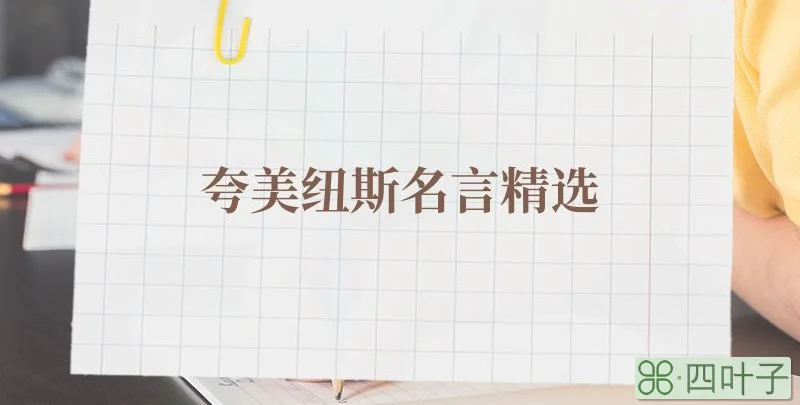 夸美纽斯名言精选
四叶子